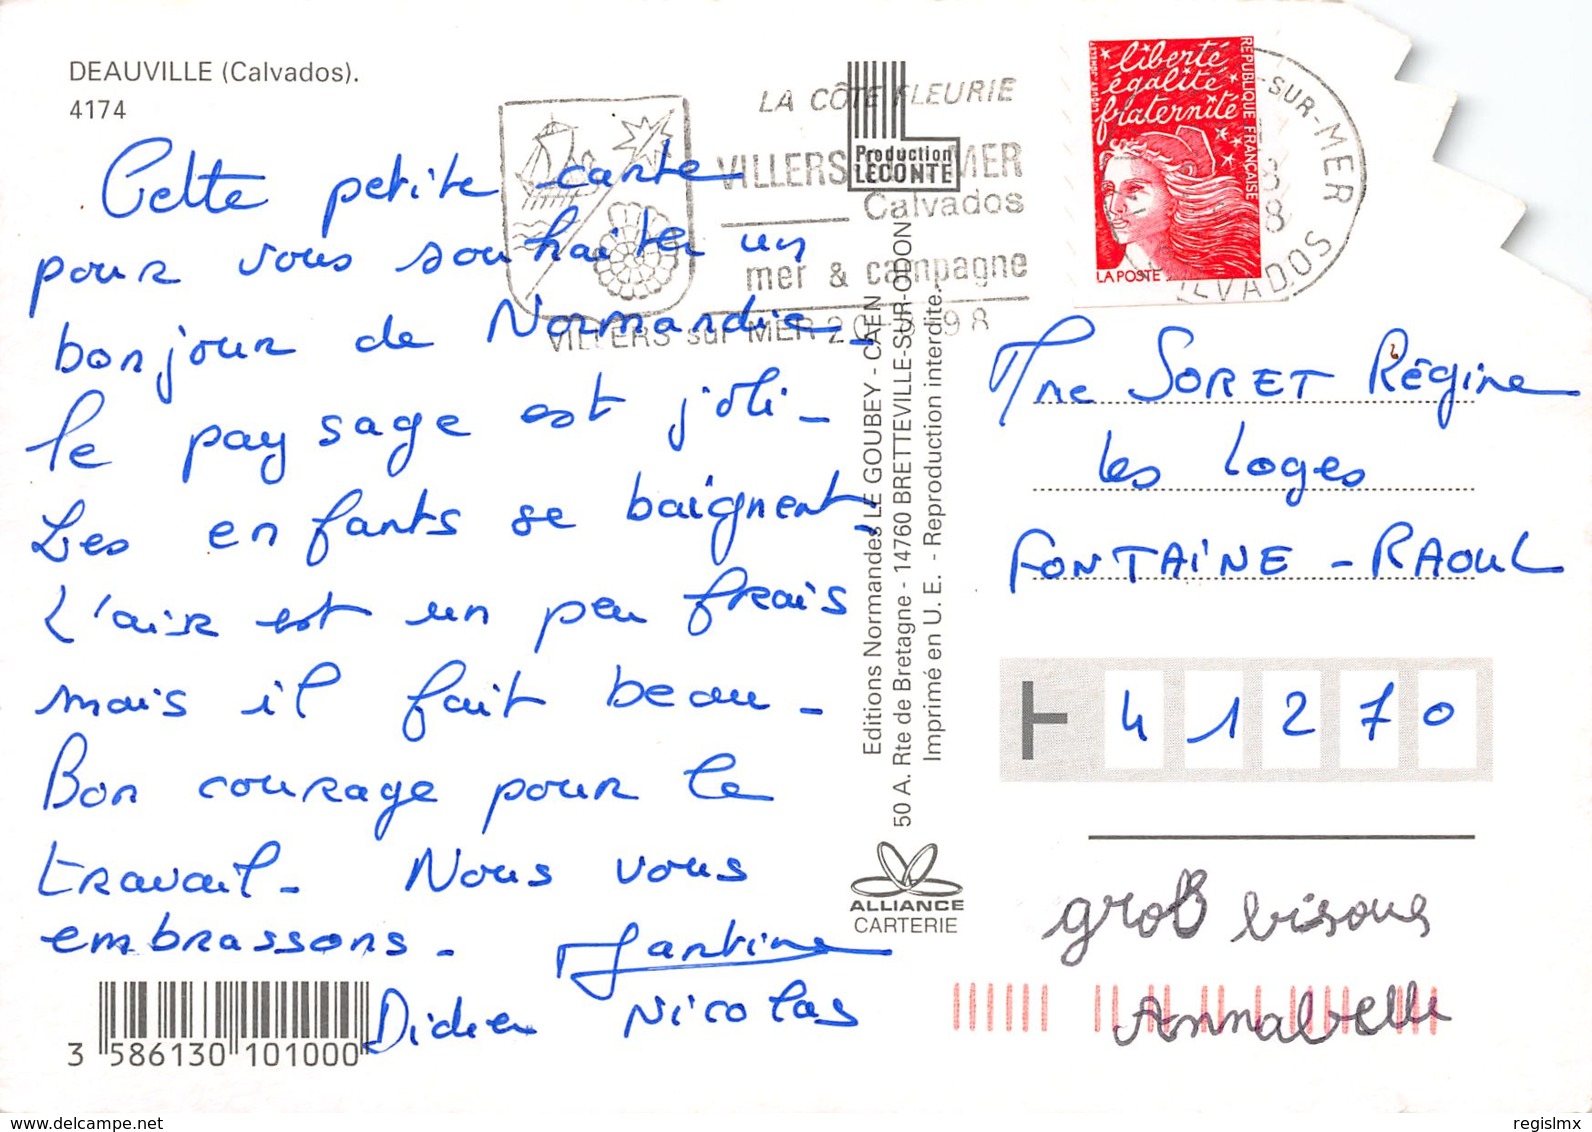 DEAUVILLE (Calvados).
4174
Cette petite carte
pour vous souhaiter un
bonjour de Normandie_
le paysage est joli_
Les enfants se baignent,
L'air est un peu frais
mais il fait beau_
Bon courage pour le
travail_ Nous vous
embrassons_ Martine
Didier Nicolas
3 586130 101000
LA CÔTE FLEURIE
VILLERS MER
Calvados
mer & campagne
VILLERS sur MER
Production
LECONTE
Editions Normandes LE GOUBEY - CAEN
50 A. Rte de Bretagne - 14760 BRETTEVILLE-SUR-ODON
Imprimé en U. E. - Reproduction interdite.
ALLIANCE
CARTERIE
liberté
égalité
fraternité
REPUBLIQUE FRANÇAISE
LA POSTE
-SUR-MER
CALVADOS
Mme SORET Régine
les loges
FONTAINE - RAOUL
41270
gros bisous
Annabelle
delcampe.net
regislmx